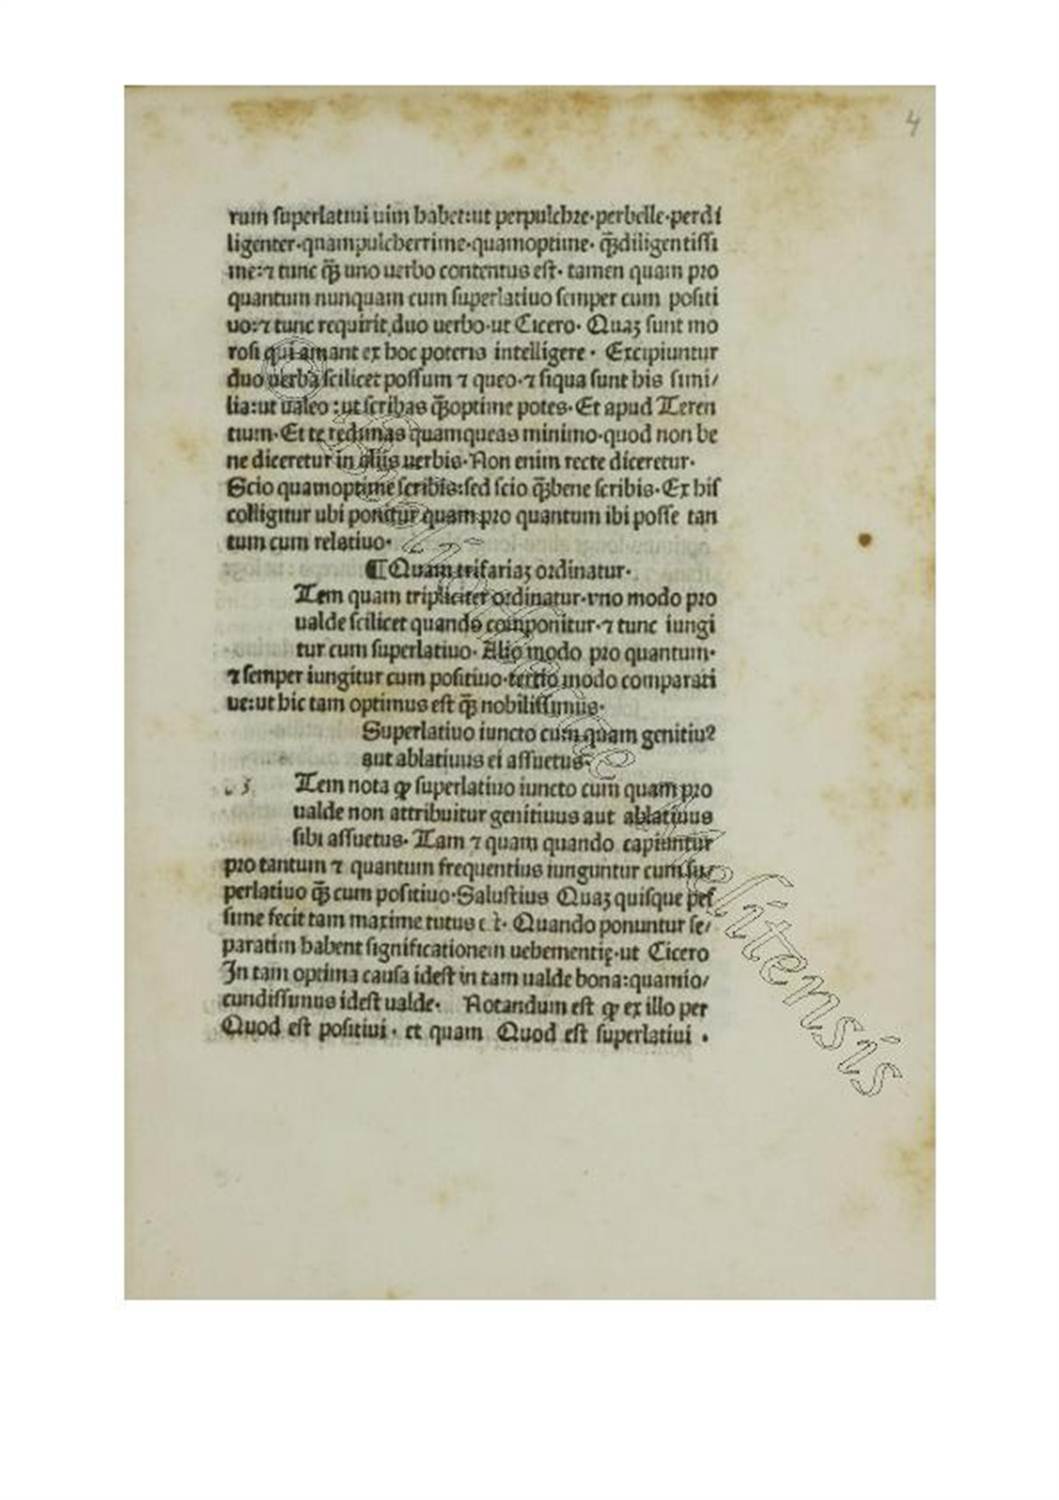 4
rum superlatiui uim habet:ut perpulchre·perbelle·perdi
ligenter·quampulcherrime·quamoptime· q̃diligentissi
me:⁊ tunc q̃ uno uerbo contentus est· tamen quam pro
quantum nunquam cum superlatiuo semper cum positi
uo:⁊ tunc requirit duo uerbo·ut Cicero· Quaꝫ sunt mo
rosi qui amant ex hoc poteris intelligere· Excipiuntur
duo uerba scilicet possum ⁊ queo·⁊ siqua sunt his simi/
lia:ut ualeo :ut scribas q̃optime potes·Et apud Teren
tium·Et te redimas quamqueas minimo·quod non be
ne diceretur in aliis uerbis·Non enim recte diceretur·
Scio quamoptime scribis:sed scio q̃bene scribis·Ex his
colligitur ubi ponitur quam pro quantum ibi posse tan
tum cum relatiuo·
¶Quam trifariaꝫ ordinatur·
Item quam tripliciter ordinatur·vno modo pro
ualde scilicet quando componitur·⁊ tunc iungi
tur cum superlatiuo· Alio modo pro quantum·
⁊ semper iungitur cum positiuo·tertio modo comparati
ue:ut hic tam optimus est q̃ nobilissimus·
Superlatiuo iuncto cum quam genitiu?
aut ablatiuus ei assuetus·
Item nota ꝙ superlatiuo iuncto cum quam pro
ualde non attribuitur genitiuus aut ablatiuus
sibi assuetus· Tam ⁊ quam quando capiuntur
pro tantum ⁊ quantum frequentius iunguntur cum su/
perlatiuo q̃ cum positiuo·Salustius Quaꝫ quisque pes
sime fecit tam maxime tutus Quando ponuntur se/
paratim habent significationem uehementię·ut Cicero
In tam optima causa idest in tam ualde bona:quamio/
cundissimus idest ualde· Notandum est ꝙ ex illo per
Quod est positiui· et quam Quod est superlatiui ·